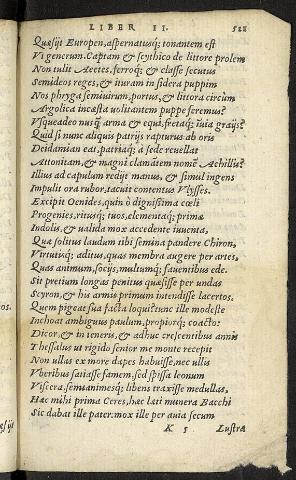 LIBER II. 522
Quæsijt Europen, aspernatusq; tonantem est
Vi generum. Captam & scythico de littore prolem
Non tulit Aeetes, ferroq; & classe secutus
Semideos reges, & ituram in sidera puppim
Nos phryga semiuirum, portus, & littora circum
Argolica incæsta uolitantem puppe feremus?
Vsqueadeo nusq̃ arma & equi, fretaq; inuia graijs?
Quid si nunc aliquis patrijs rapturus ab oris
Deidamian eat, patriaq; a sede reuellat
Attonitam, & magni clamátem nomẽ Achillis?
Illius ad capulum redijt manus, & simul ingens
Impulit ora rubor, tacuit contentus Vlysses.
Excipit Oenides, quin ò dignissima cœli
Progenies, ritusq; tuos, elementaq; primæ
Indolis, & ualida mox accedente iuuenta,
Quæ solitus laudum tibi semina pandere Chiron,
Virtutisq; aditus, quas membra augere per artes,
Quas animum, socijs, multumq; fauentibus ede.
Sit pretium longas penitus quæsisse per undas
Scyron, & his armis primum intendisse lacertos.
Quem pigeat sua facta loqui? tunc ille modeste
Inchoat ambiguus paulum, propiorq; coacto:
Dicor, & in teneris, & adhuc crescentibus annis
Thessalus ut rigido senior me monte recepit
Non ullas ex more dapes habuisse, nec ullis
Vberibus satiasse famem, sed spissa leonum
Viscera, semianimesq; libens traxisse medullas,
Hæc mihi prima Ceres, hæc læti munera Bacchi
Sic dabat ille pater. mox ille per auia secum
K 5 Lustra